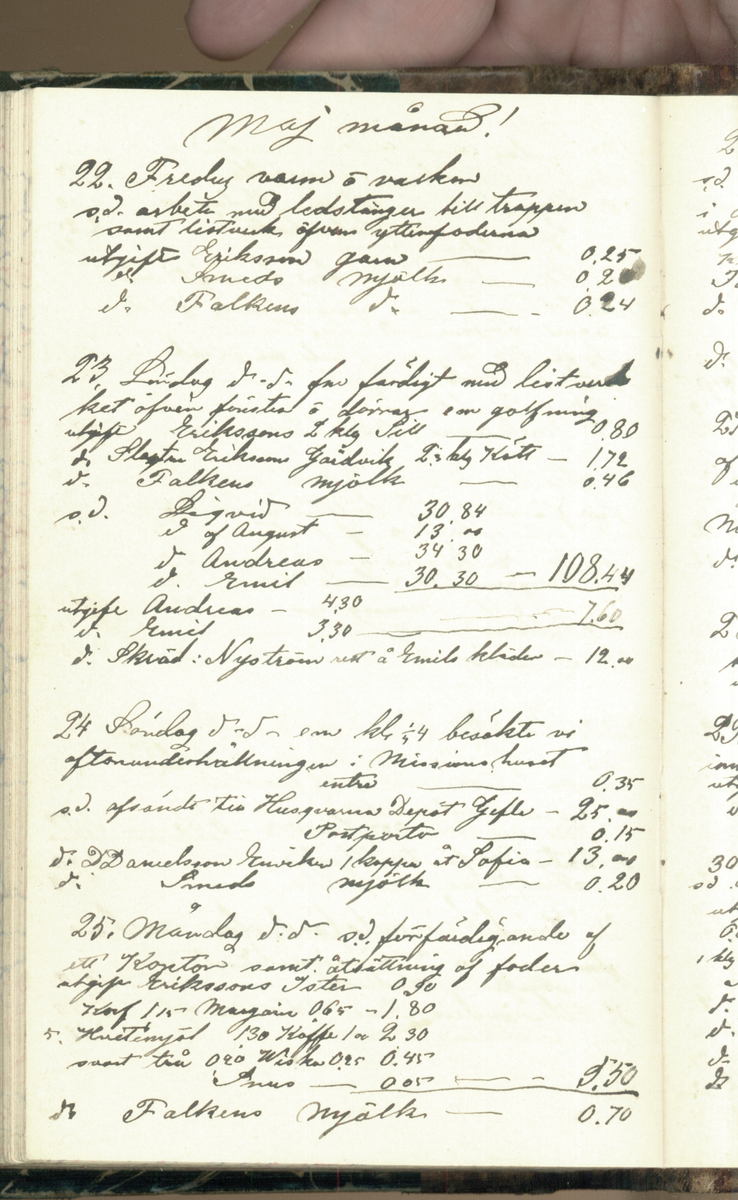 Maj månad!
22. Fredag varm o vacker
s.d. arbete med ledstänger till trappen
samt listverk öfver ytterfoderna
utgift Eriksson garn — 0,25
d. Smeds mjölk — 0.20
d. Falkens d. — 0.24
23. Lördag d-d- fm färdigt med listver
ket öfver fönster o dörrar em golfning
utgift Erikssons 2 klg Sill — 0.80
d. Slagtar Eriksson Gärdvik klg Kött — 1.72
d. Falkens mjölk — 0.46
s.d. Liqvid — 30.84
d. af August — 13.00
d Andreas — 34 30
d. Emil — 30.30 — 108.44
utgift Andreas — 4.30
d. Emil 3.30 — 7.60
d. Skräd: Nyström rest å Emils kläder — 12.00
24 Söndag d-d- em kl: 4 besökte vi
aftonunderhållningen i Missionshuset
entre — 0.35
s.d. afsände till Husqvarna Depôt Gefle — 25.00
Postporto — 0.15
d. D Danielsson Enviken 1 kappa åt Sofia — 13.00
d: Smeds mjölk — 0.20
25. Måndag d.d. s.d. förfärdigande af
ett Kontor samt åtsättning af foder
utgift Erikssons Ister 0.90
Korf 1 15 Margarin 065 — 1.80
5. Hvetemjöl 130 Kaffe 1 00 2 30
svart trå 020 Wiska 025 0.45
Snus — 0 05 — 5.50
d. Falkens Mjölk — 0.70